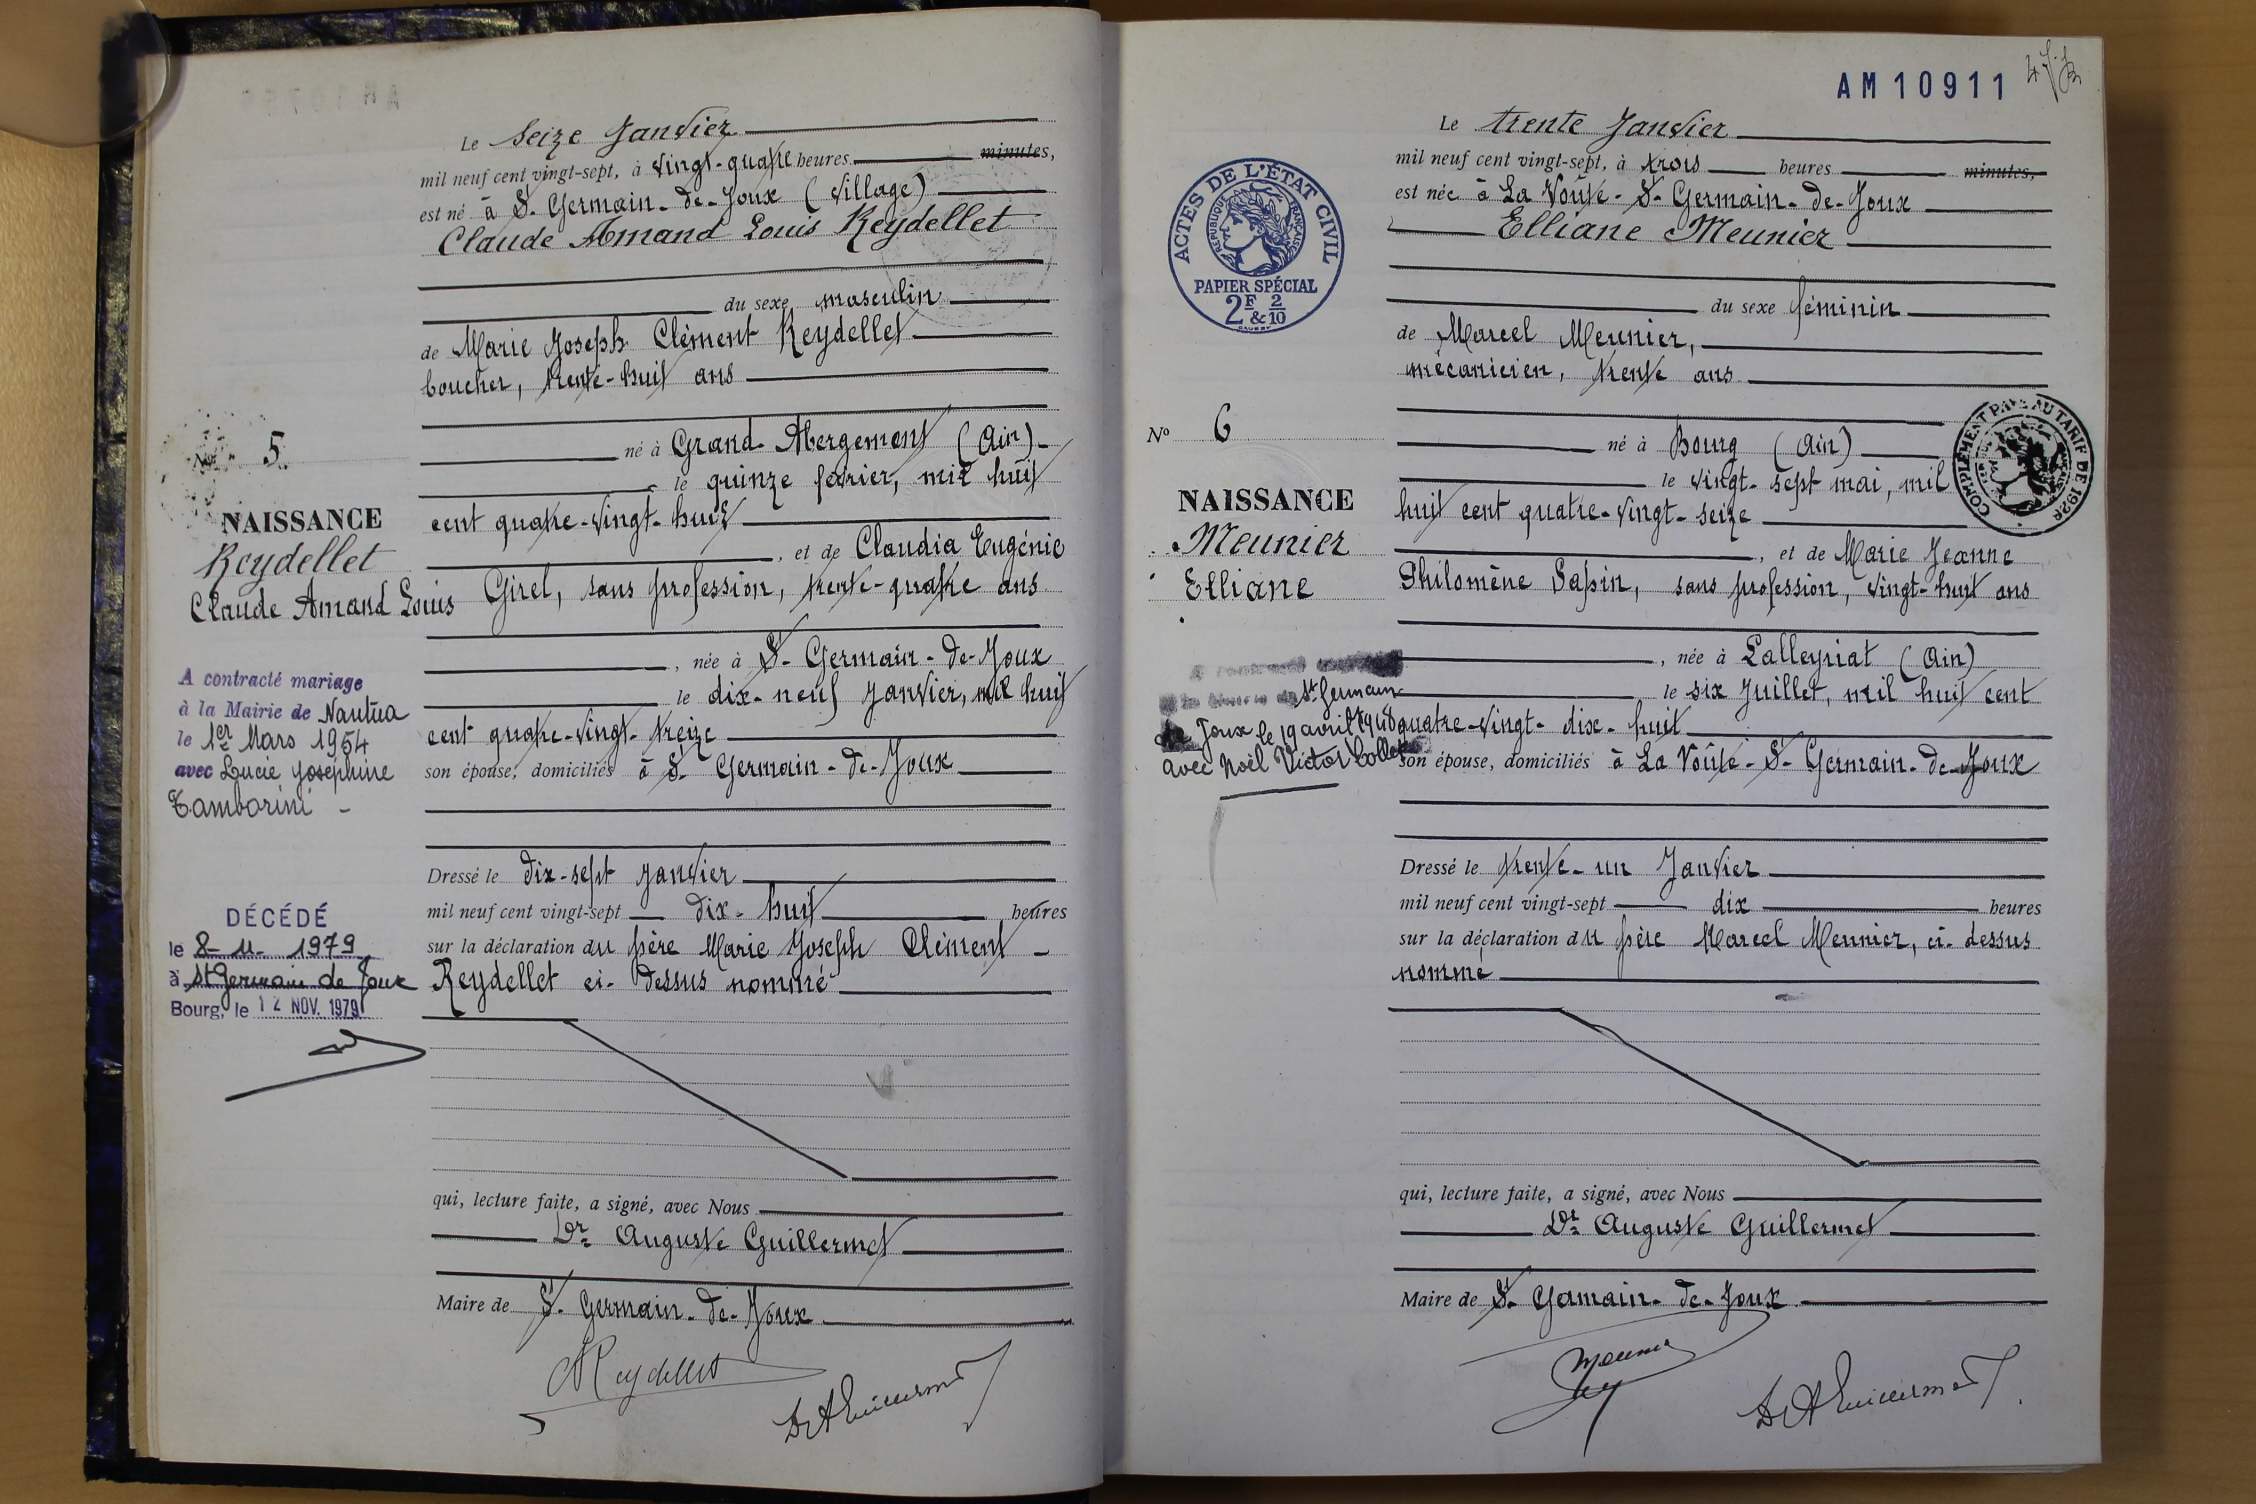 Le Seize Janvier
mil neuf cent vingt-sept, à vingt-quatre heures minutes,
est né à St Germain-de-Joux (village)
Claude Amand Louis Reydellet
du sexe masculin
de Marie Joseph Clément Reydellet
boucher, trente-huit ans
né à Grand-Abergement (Ain)
le quinze février, mil huit
cent quatre-vingt-huit
, et de Claudia Eugénie
Girel, sans profession, trente-quatre ans
, née à St-Germain-de-Joux
le dix-neuf janvier, mil huit
cent quatre-vingt-treize
son épouse, domiciliés à St-Germain-de-Joux
Dressé le dix-sept janvier
mil neuf cent vingt-sept dix-huit heures
sur la déclaration du père Marie Joseph Clément
Reydellet ci-dessus nommé
qui, lecture faite, a signé, avec Nous
Dr Auguste Guillermet
Maire de St-Germain-de-Joux
Reydellet
Dr A Guillermet
No 5
NAISSANCE
Reydellet
Claude Amand Louis
A contracté mariage
à la Mairie de Nantua
le 1er Mars 1954
avec Lucie Joséphine
Tamborini -
DÉCÉDÉ
le 8-11-1979
à St Germain de Joux
Bourg, le 12 NOV. 1979
AM 10911
Le trente Janvier
mil neuf cent vingt-sept, à trois heures minutes,
est née à La Voûte-St-Germain-de-Joux
Elliane Meunier
du sexe féminin
de Marcel Meunier,
mécanicien, trente ans
né à Bourg (Ain)
le vingt-sept mai, mil
huit cent quatre-vingt-seize
, et de Marie Jeanne
Philomène Sapin, sans profession, vingt-huit ans
, née à Lalleyriat (Ain)
le six Juillet, mil huit cent
quatre-vingt-dix-huit
son épouse, domiciliés à La Voûte-St-Germain-de-Joux
Dressé le trente-un Janvier
mil neuf cent vingt-sept dix heures
sur la déclaration du père Marcel Meunier, ci-dessus
nommé
qui, lecture faite, a signé, avec Nous
Dr Auguste Guillermet
Maire de St-Germain-de-Joux
Meunier
Dr A Guillermet
ACTES DE L'ÉTAT CIVIL
RÉPUBLIQUE FRANÇAISE
PAPIER SPÉCIAL
2F & 2/10
COMPLÉMENT PAYÉ AU TARIF DE 1926
No 6
NAISSANCE
Meunier
Elliane
St Germain
de Joux le 19 avril 1948
avec Noël Victor Collet